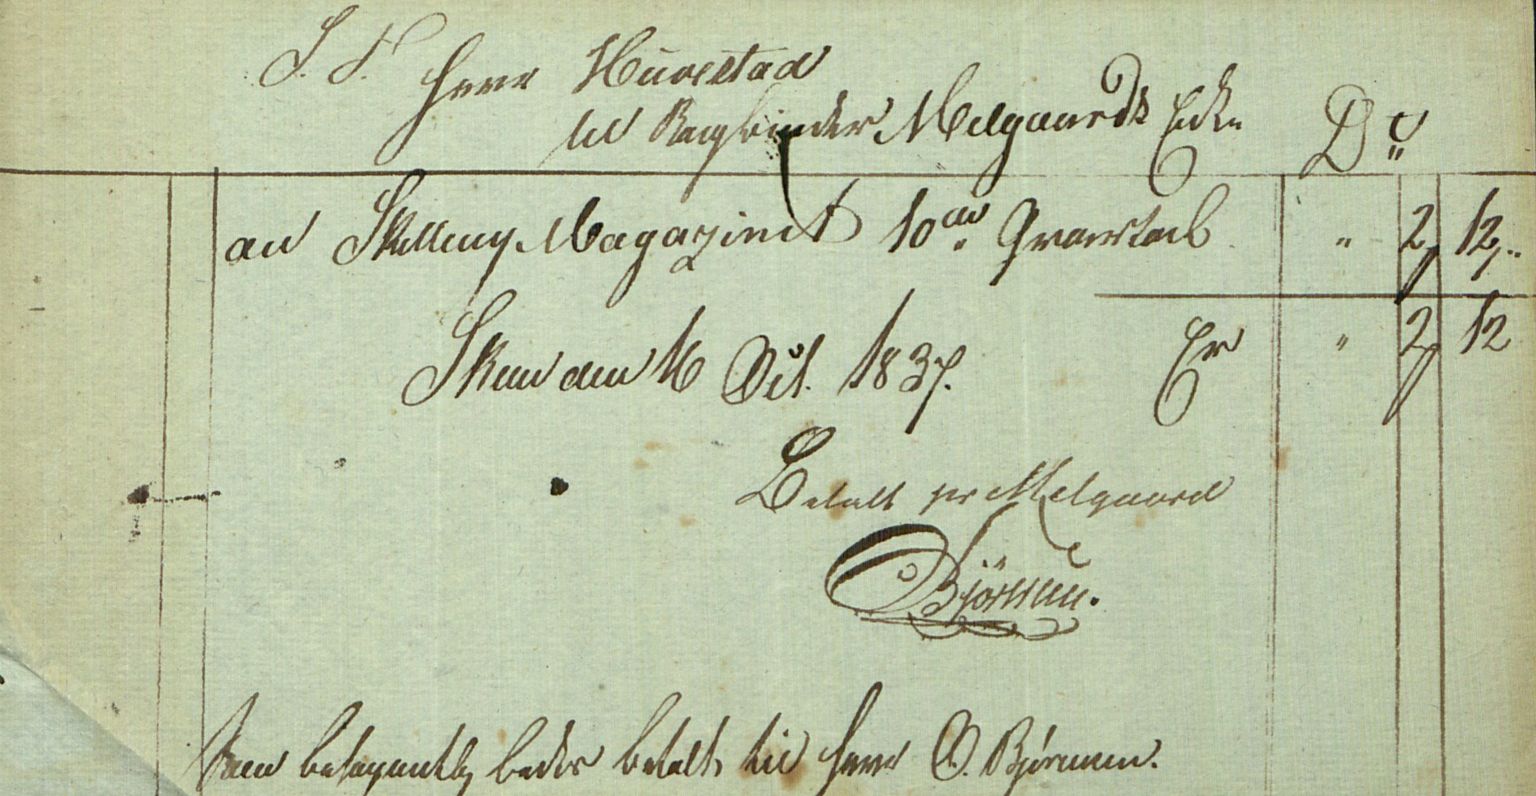 S. T. Herr Huvestad
til Bogbinder Melgaards Enke Dr
an Skilling Magazinet 10de Qvartal " 2 12
Skien den 16 Oct. 1837. Er " 2 12
Betalt for Melgaard
Björnsen.
Som behageligt bedes betalt til Herr O. Björnsen.